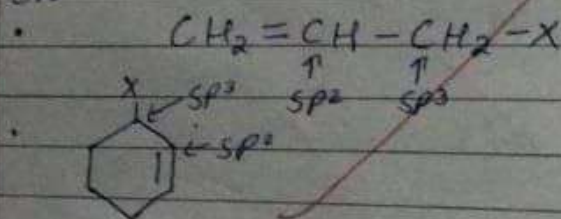 CH₂ = CH – CH₂ – X
↑ ↑
sp² sp³
X
sp³
sp²